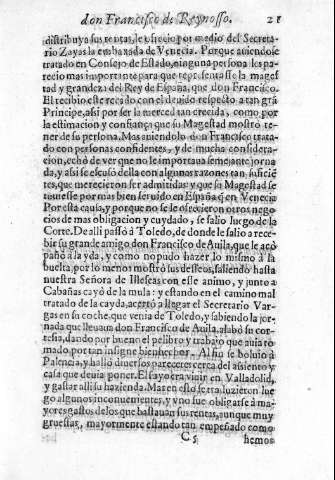 don Francisco de Reynoso. 21
distribuya sus rentas, le ofrecio por medio del Secreta-
rio Zayas la embaxada de Venecia. Porque auiendose
tratado en Consejo de Estado, ninguna persona les pa-
recio mas importante para que representasse la mages
tad y grandeza del Rey de España, que don Francisco.
El recibio este recado con el deuido respecto a tan grã
Principe, asi por ser la merced tan crecida, como por
la estimacion y confiança que su Magestad mostro te-
ner de su persona. Mas auiendolo don Francisco trata-
do con personas confidentes, y de mucha considera-
cion, echò de ver que no le importaua semejante jorna
da, y asi se escusò della con algunas razones tan suficiẽ
tes, que merecieron ser admitidas y que su Magestad se
tuuiesse por mas bien seruido en España q̃ en Venecia
Por esta causa, y porque no se le ofrecieron otros nego
cios de mas obligacion y cuydado, se salio luego de la
Corte. De alli passò à Toledo, de donde le salio a rece-
bir su grande amigo don Francisco de Auila, que le acõ
pañò a la yda, y como no pudo hazer lo mismo à la
buelta, por lo menos mostrò sus desseos, saliendo hasta
nuestra Señora de Illescas con este animo, y junto a
Cabañas cayò de la mula: y estando en el camino mal
tratado de la cayda, acertò a llegar el Secretario Var-
gas en su coche, que venia de Toledo, y sabiendo la jor-
nada que lleuaua don Francisco de Auila, alabò su cor-
tesia, dando por bueno el peligro y trabajo que auia to
mado por tan insigne bienhechor. Al fin se boluiò à
Palencia, y hallò diuersos pareceres cerca del asiento y
casa que deuia poner. El suyo era viuir en Valladolid,
y gastar alli su hazienda. Mas en esto se traluzieron lue
go algunos inconuenientes, y vno fue obligarse à ma-
yores gastos de los que bastauan sus rentas, aunque muy
gruessas, mayormente estando tan empeñado como
C 5 hemos